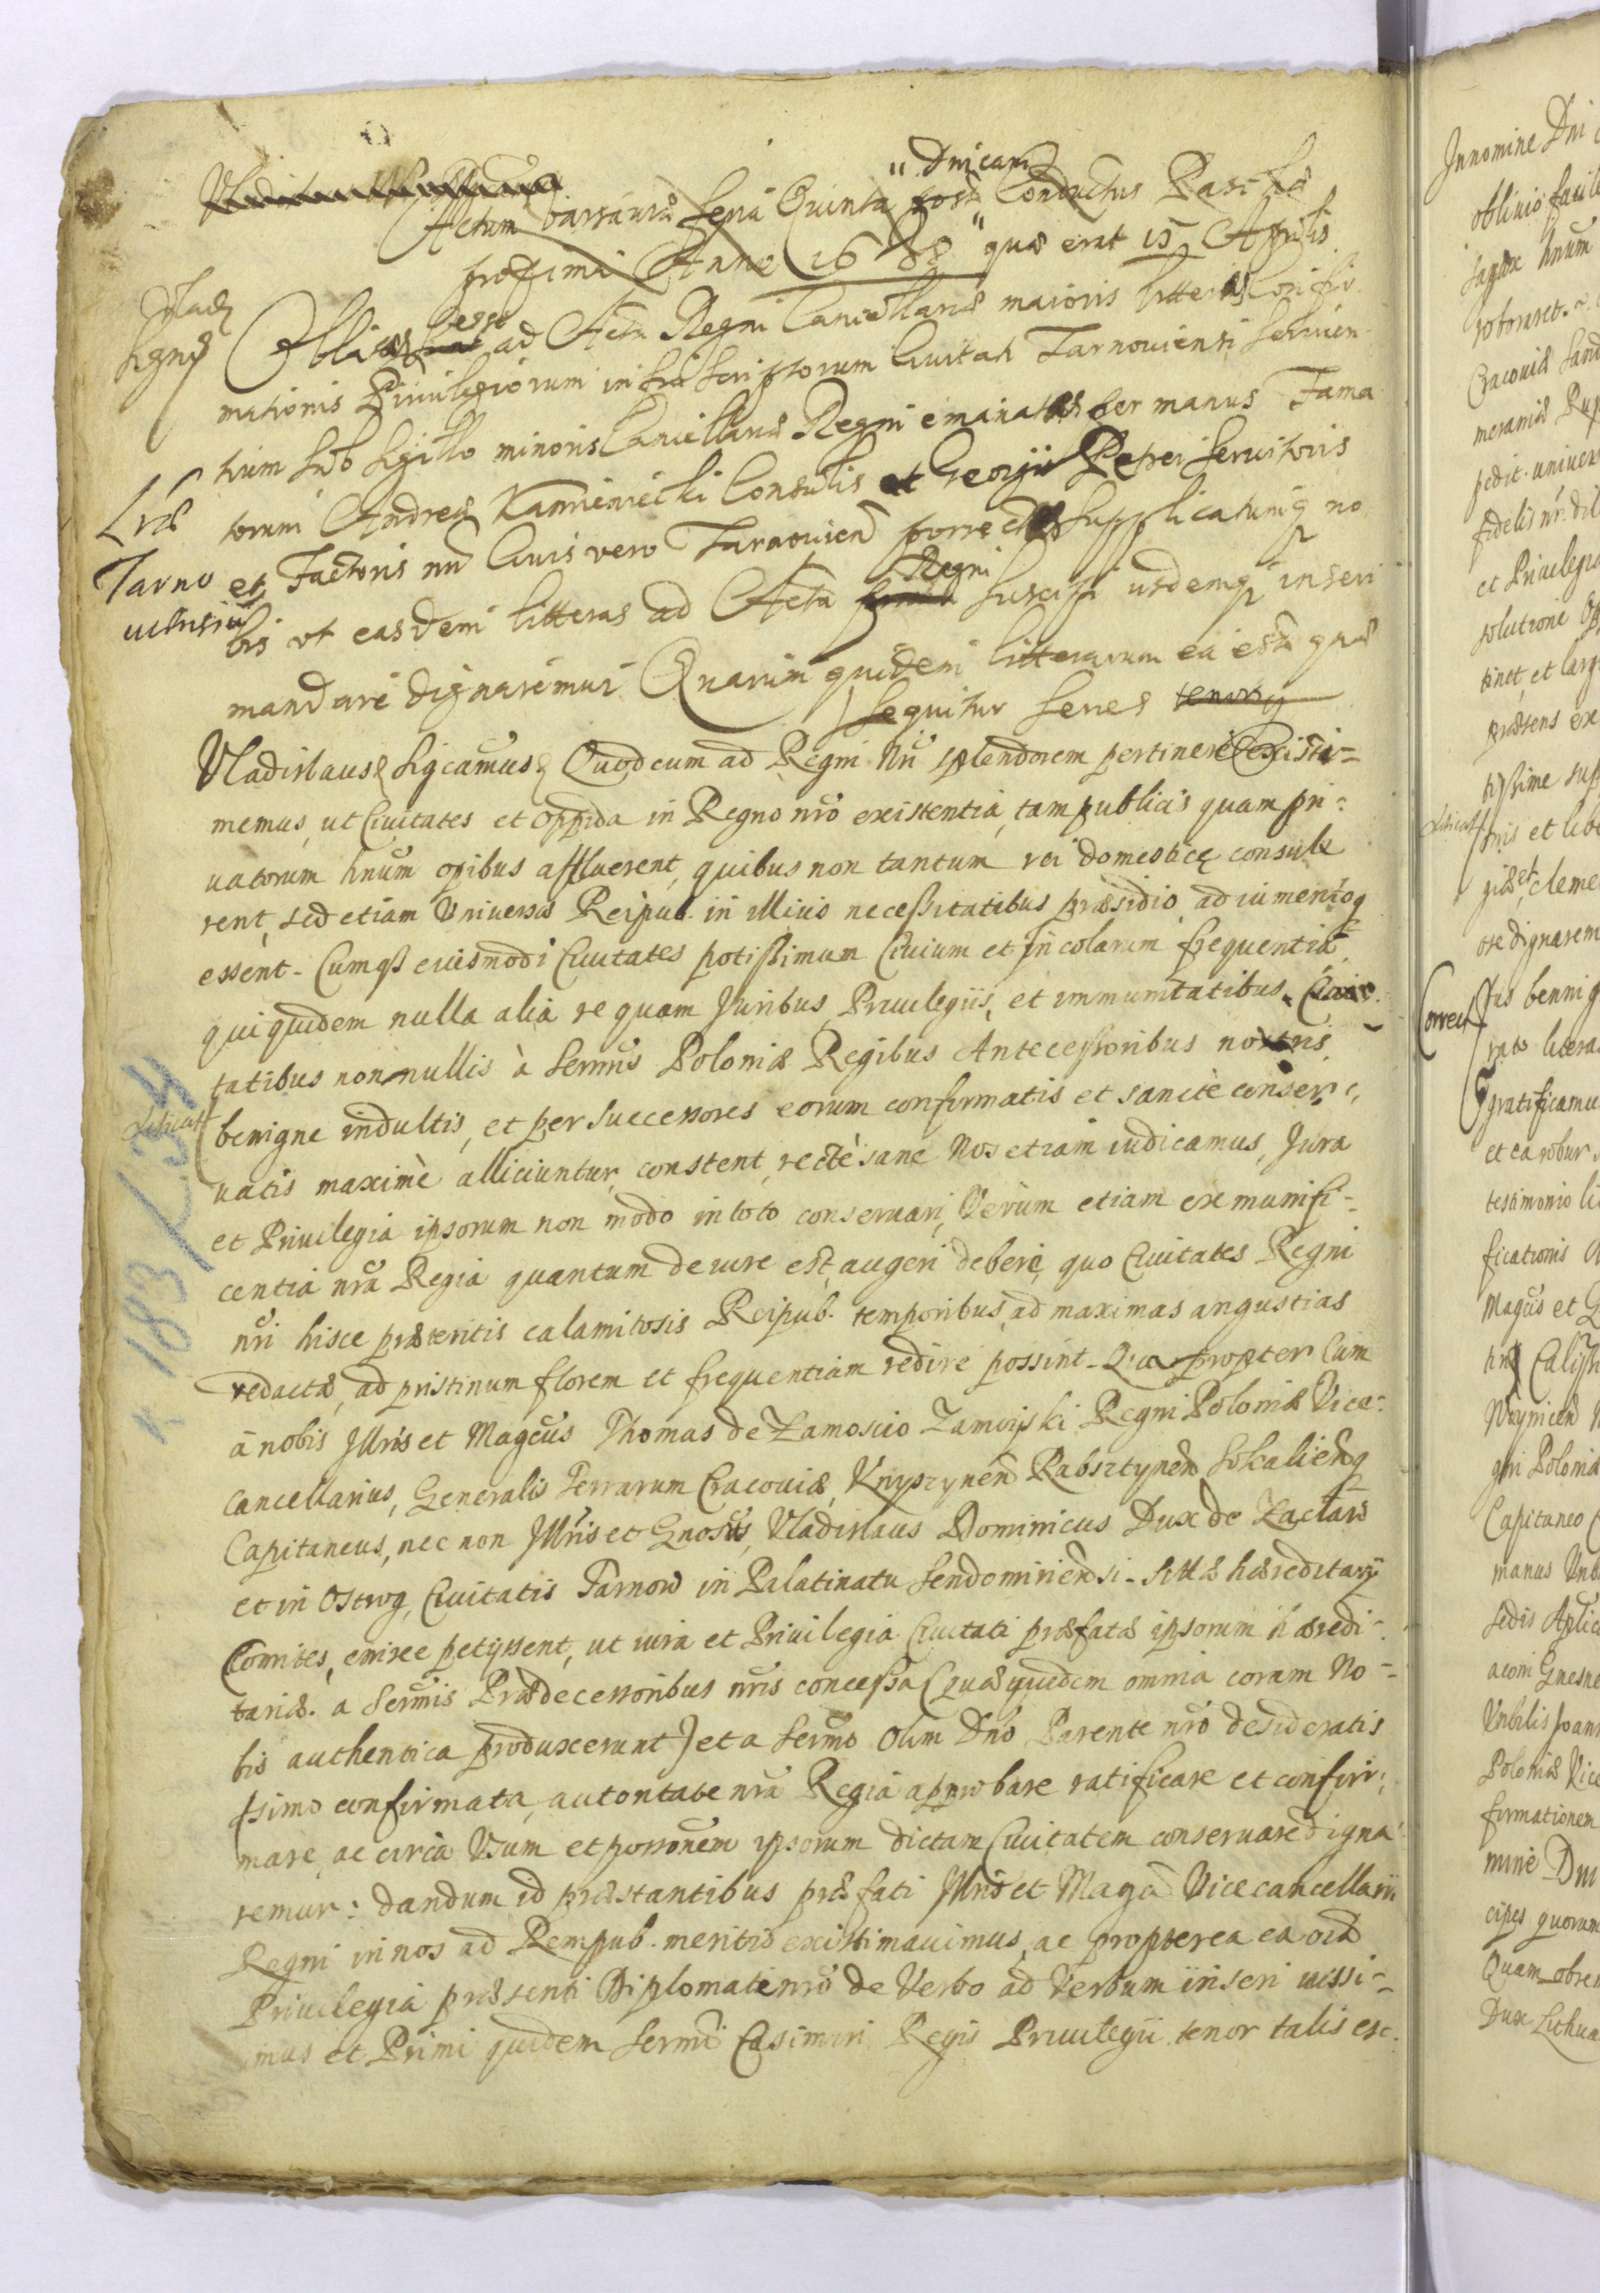 Dnicam
Actum Varsaviæ feria Quinta post Conductus Paschæ
proxima Anno 1638 quæ erat 15 Aprilis
Vlad
Signd
Oblatas esse ad Acta Regni Cancellariæ maioris litteras Confir
mationis Privilegiorum infrascriptorum Civitati Tarnoviensi servien
tium sub sigillo minoris Cancellariæ Regni emanatas per manus Fama
Lræ
torum Andreæ Kamieniecki Consulis et Georgii Petrei servitoris
Tarno
viensiu
et Factoris nri Civis vero Tarnovien porrectas supplicatumq no
Regni
bis vt easdem litteras ad Acta suscipi iisdemq inseri
mandare dignaremur Quarum quidem litterarum ea est quæ
sequitur series tenorq
Vladislaus Sigcamus Quod cum ad Regni Nri splendorem pertinere existi=
memus, ut Civitates et Oppida in Regno nro existentia, tam publicis quam pri=
vatorum hnum opibus affluerent, quibus non tantum rei domesticę consule
rent, sed etiam Universæ Reipub. in illius necessitatibus præsidio, adiumentoq
essent. Cumq eiusmodi Civitates potissimum Civium et Incolarum frequentia,
qui quidem nulla alia re quam Juribus, Privilegiis, et immunitatibus, Civi
tatibus non nullis à Sermis Poloniæ Regibus Antecessoribus nostris,
benigne indultis, et per Successores eorum confirmatis et sancitè conser,
vatis maximè alliciuntur, constent, rectè sane Nos etiam iudicamus, Jura
et Privilegia ipsorum non modo in toto conservari, Verùm etiam ex munifi=
centia nra Regia quantum de iure est, augeri debere, quo Civitates Regni
nri hisce præteritis calamitosis Reipub. temporibus, ad maximas angustias
redactæ, ad pristinum florem et frequentiam redire possint. Qua propter Cum
à nobis Illris et Magcus Thomas de Zamoscio Zamoyski Regni Poloniæ Vice=
cancellarius, Generalis Terrarum Cracoviæ, Knyszynen Rabsztynen Sokalienq
Capitaneus, nec non Illris et Gnosus, Vladislaus Dominicus Dux de Zaslaw
et in Ostrog, Civitatis Tarnow in Palatinatu Sendomiriensi sitæ hæreditarij
Comites, enixe petyssent, ut iura et Privilegia Civitati præfatæ ipsorum hæredi=
tariæ. a Sermis Prædecessoribus nris concessa (quæ quidem omnia coram No=
bis authentica produxerunt) et a Sermo Olim Dno Parente nro desideratis
ssimo confirmata, autoritate nra Regia approbare ratificare et confir=
mare, ac circa Vsum et possonem ipsorum dictam Civitatem conservare digna
remur: dandum id præstantibus præfati Illris et Magci Vicecancellarii
Regni in nos ad Rempub. meritis existimavimus, ac propterea ea oia
Privilegia præsenti Diplomati nro de Verbo ad Verbum inseri iussi=
mus et Primi quidem Sermi Casimiri Regis Privilegii tenor talis est.
183
Innomine Dni
oblivio facile
hnum
roboraret.
Cracoviæ Sand
pedit. univer
et Privilegia
solutione
tinet, et larg
præsens ex
Correct
ore dignarem
tus bennig
gratificamu
et ea robur
testimonio
ficationis
Magcus et G
Calish
gni Poloniæ
Capitaneo
manus
sedis Aplicæ
Gnesne
Poloniæ Vice
firmationem
mine Dni
cipes quorum
Quam obrem
Dux Lithua